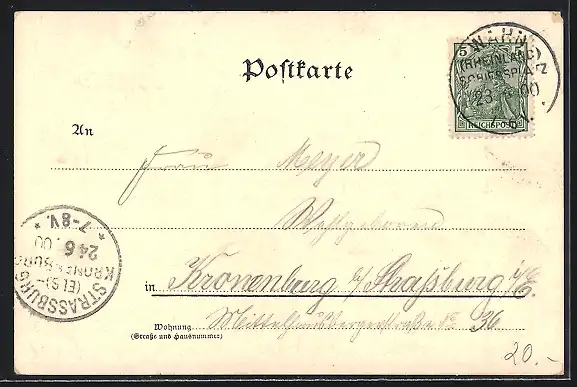 5 5
WAHN
(RHEINLAND)
SCHIESSPLATZ
23 00
REICHSPOST
Postkarte
An
Frau Meyer
Wohlgeboren
STRASSBURG
(ELS)-
KRONENBURG
24 6
00
* 7-8V. *
in Kronenburg b/ Straßburg i/E.
Wohnung
(Straße und Hausnummer)
36
20.-